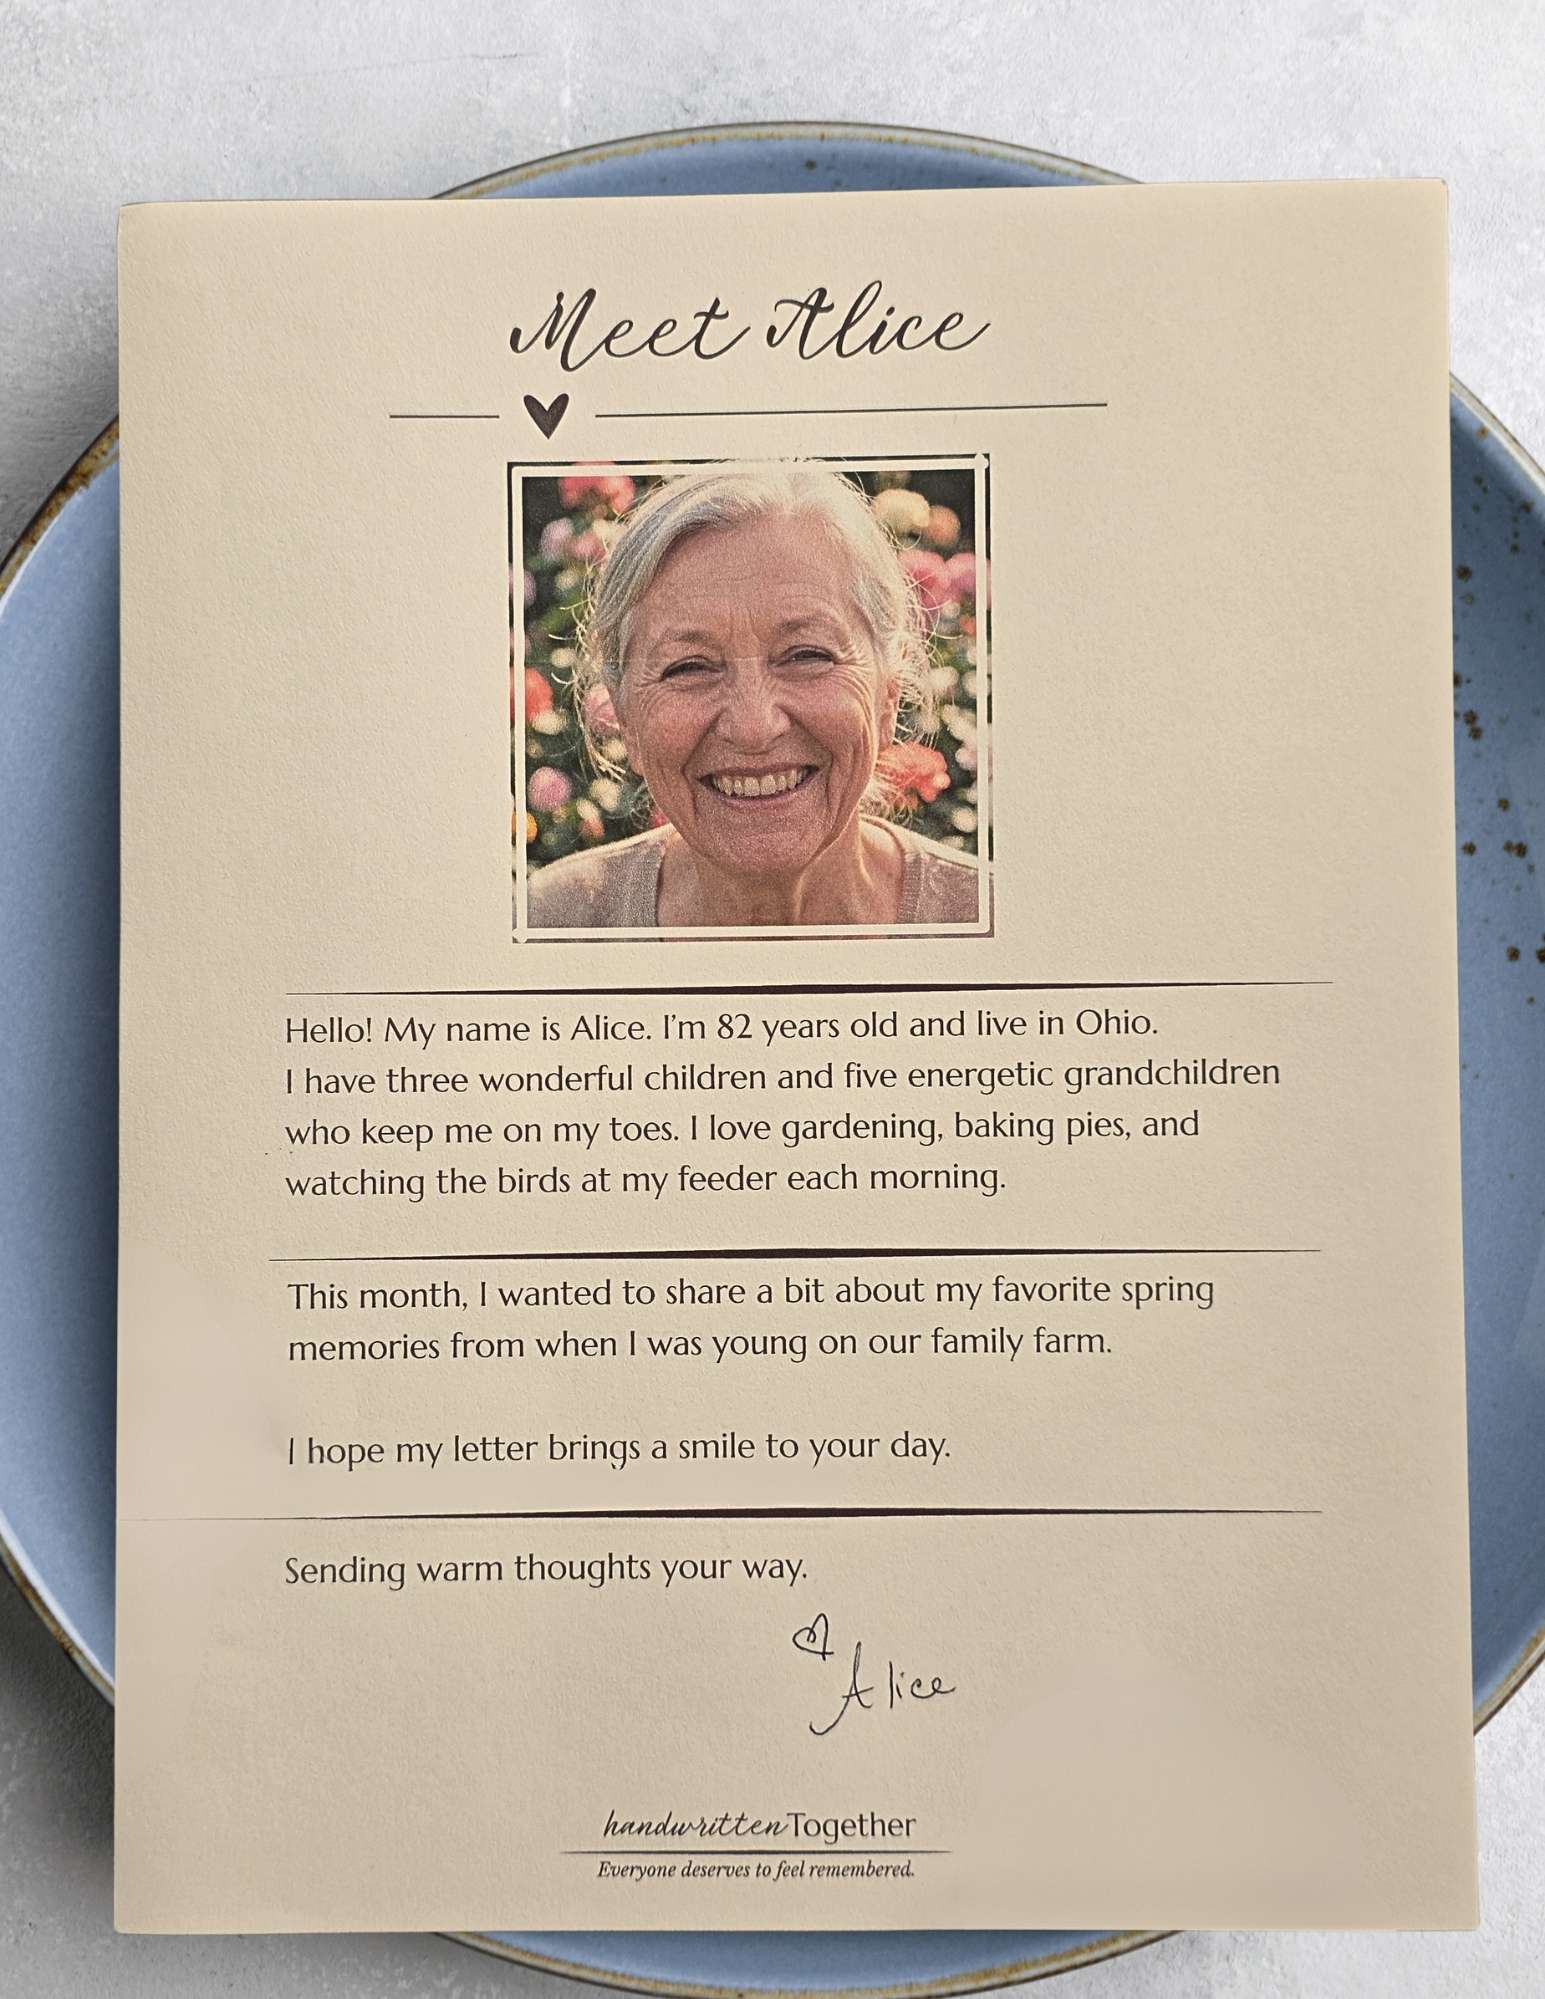 Meet Alice
Hello! My name is Alice. I'm 82 years old and live in Ohio.
I have three wonderful children and five energetic grandchildren
who keep me on my toes. I love gardening, baking pies, and
watching the birds at my feeder each morning.
This month, I wanted to share a bit about my favorite spring
memories from when I was young on our family farm.
I hope my letter brings a smile to your day.
Sending warm thoughts your way.
Alice
handwrittenTogether
Everyone deserves to feel remembered.